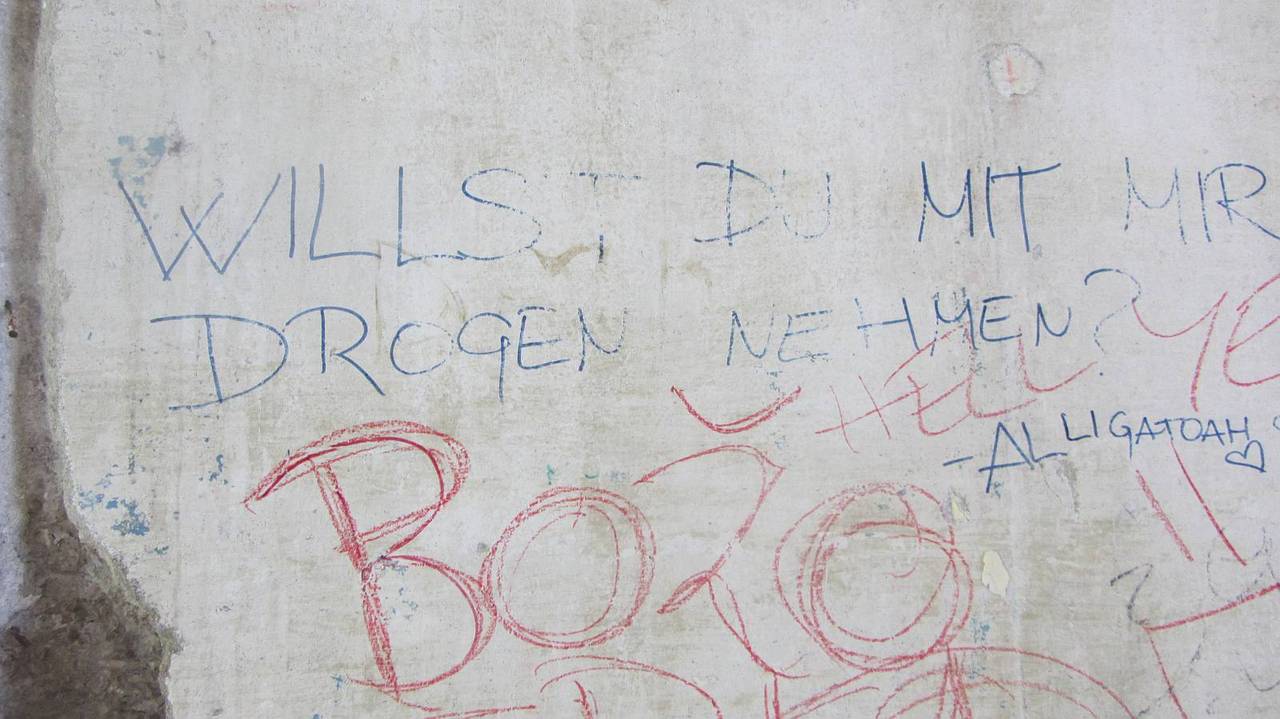 WILLST DU MIT MIR
DROGEN NEHMEN?
HELL YE
-ALLIGATOAH ♡
BOZO